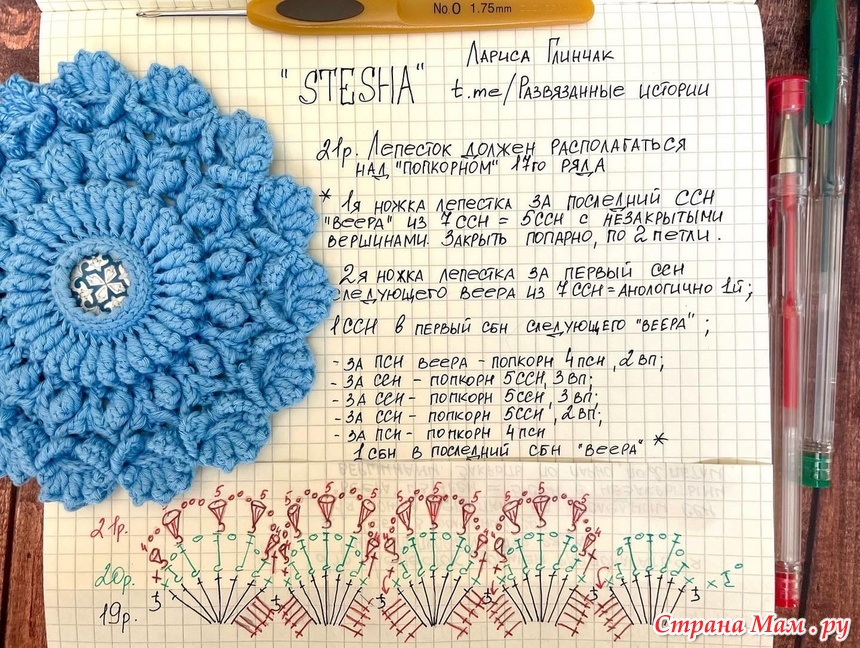 No 0 1.75mm
"STESHA" Лариса Глинчак
t.me/Развязанные истории
21р. Лепесток должен располагаться
над "попкорном" 17го ряда
* 1я ножка лепестка за последний ССН
"веера" из 7 ССН = 5ССН с незакрытыми
вершинами. Закрыть попарно, по 2 петли.
2я ножка лепестка за первый ССН
следующего веера из 7 ССН = анологично 1й;
1 ССН в первый сбн следующего "веера";
- за ПСН веера - попкорн 4 псн, 2 вп;
- за ССН - попкорн 5 ССН, 3 вп;
- за ССН - попкорн 5 ССН, 3 вп;
- за ССН - попкорн 5 ССН, 2 вп;
- за ПСН - попкорн 4 псн
1 СБН в последний сбн "веера" *
21р.
20р.
19р.
Страна Мам.ру